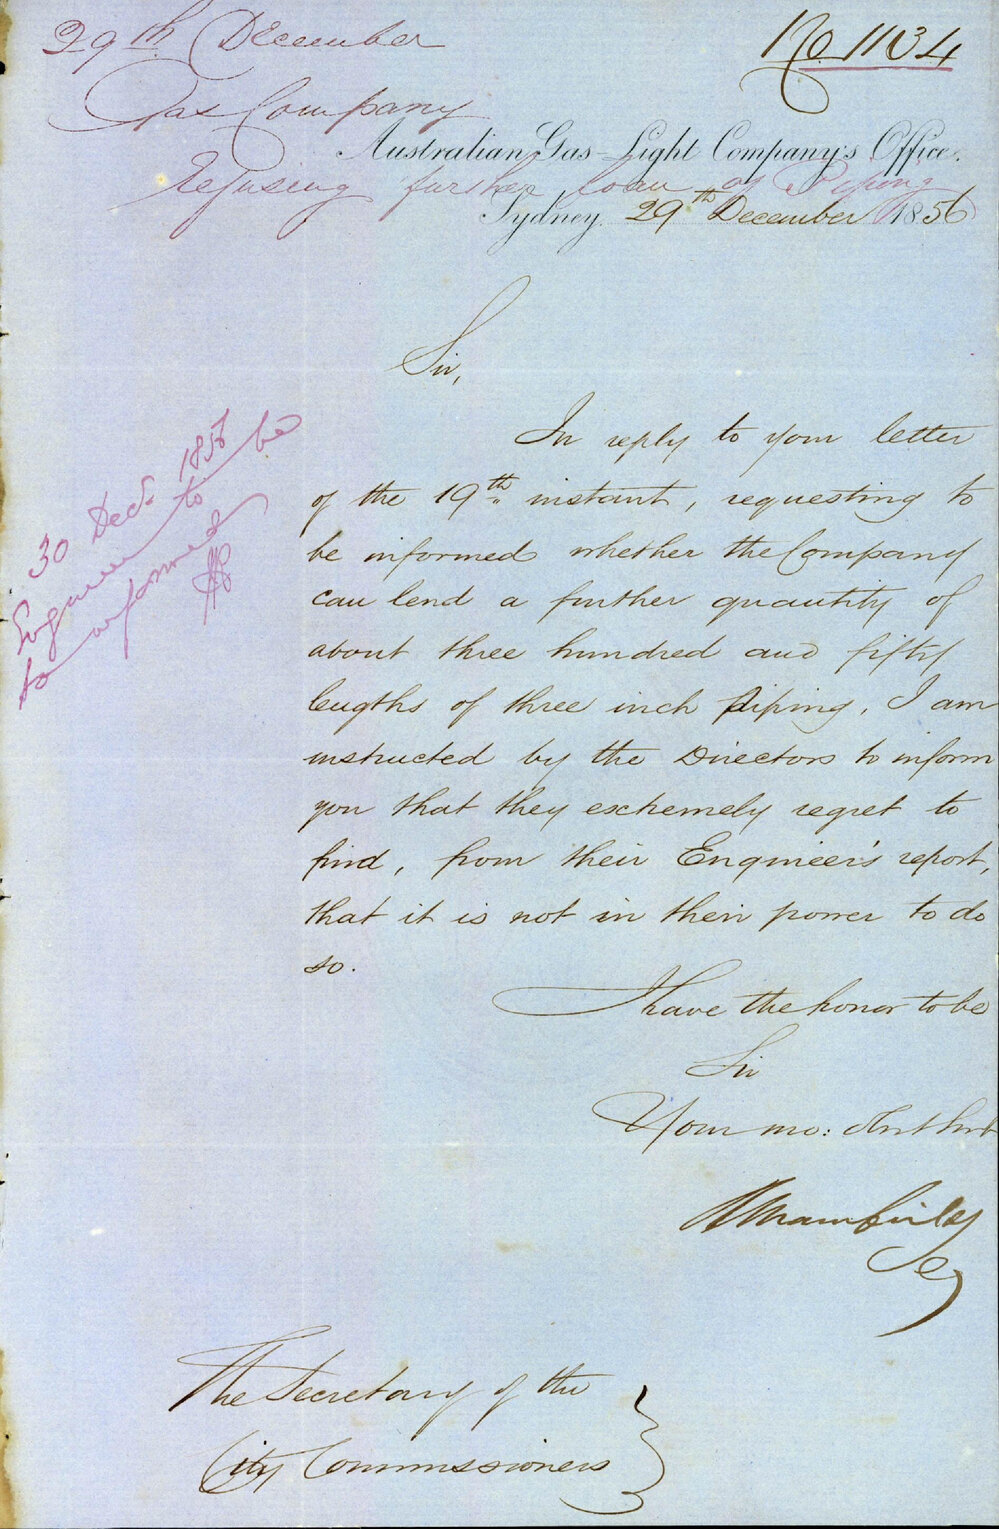 29th December
No. 1134
Gas Company
Australian Gas-Light Company's Office.
Refusing further loan of Piping
Sydney 29th December 1856
Sir,
30 Decr 1856
Engineer to be
to be informed
In reply to your letter
of the 19th instant, requesting to
be informed whether the Company
can lend a further quantity of
about three hundred and fifty
lengths of three inch piping, I am
instructed by the Directors to inform
you that they extremely regret to
find, from their Engineer's report,
that it is not in their power to do
so.
I have the honor to be
Sir
Your mo:
The Secretary of the
City Commissioners